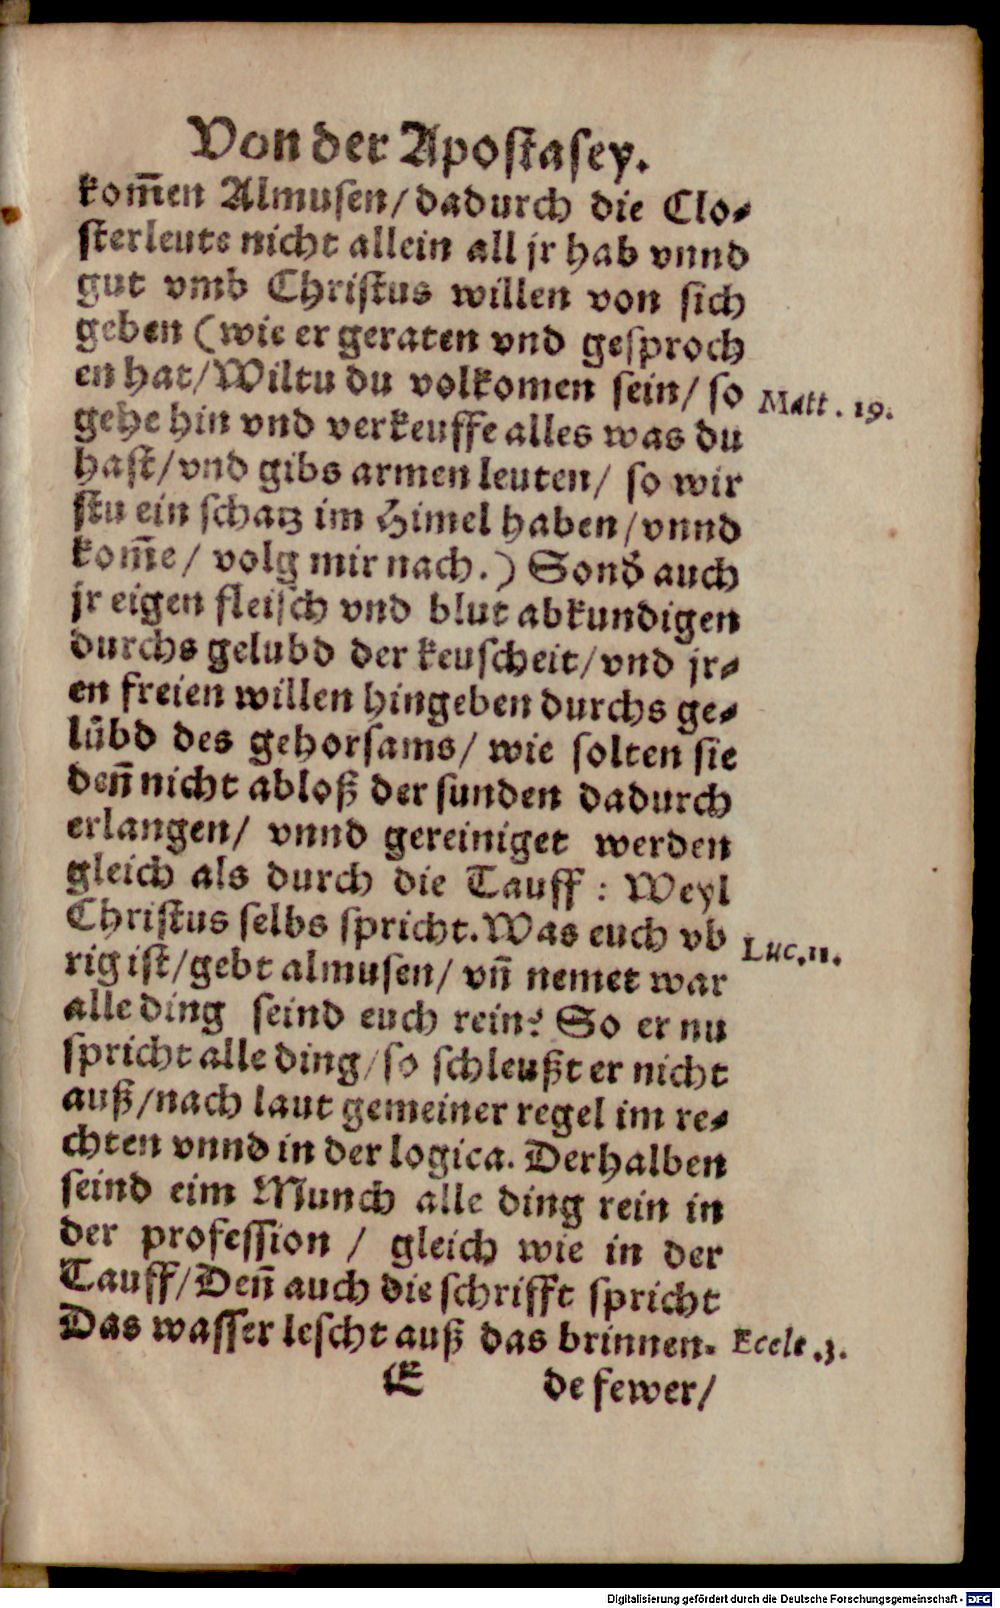 Von der Apostasey.
kom̄en Almusen/ dadurch die Clo-
sterleute nicht allein all jr hab vnnd
gut vmb Christus willen von sich
geben (wie er geraten vnd gesproch
en hat/ Wiltu du volkomen sein/ so
Matt. 19.
gehe hin vnd verkeuffe alles was du
hast/ vnd gibs armen leuten/ so wir
stu ein schatz im Himel haben/ vnnd
kom̄e/ volg mir nach.) Sond̛ auch
jr eigen fleisch vnd blut abkundigen
durchs gelubd der keuscheit/ vnd jr-
en freien willen hingeben durchs ge-
lübd des gehorsams/ wie solten sie
den̄ nicht abloß der sunden dadurch
erlangen/ vnnd gereiniget werden
gleich als durch die Tauff: Weyl
Christus selbs spricht. Was euch vb
Luc. 11.
rig ist/ gebt almusen/ vn̄ nemet war
alle ding seind euch rein? So er nu
spricht alle ding/ so schleußt er nicht
auß/ nach laut gemeiner regel im re-
chten vnnd in der logica. Derhalben
seind eim Munch alle ding rein in
der profession / gleich wie in der
Tauff/ Den̄ auch die schrifft spricht
Das wasser lescht auß das brinnen-
Eccle. 3.
E de fewer/
Digitalisierung gefördert durch die Deutsche Forschungsgemeinschaft - DFG